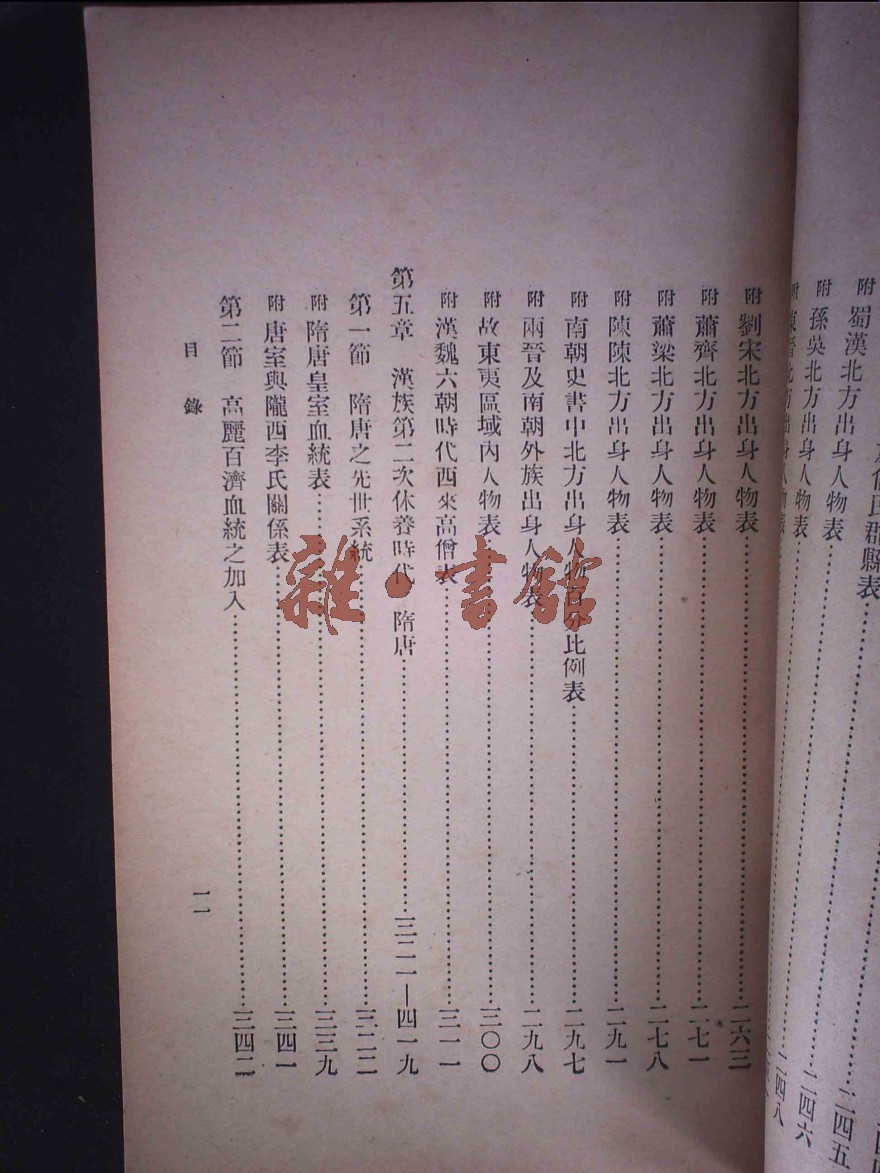 附 蜀漢北方出身人物表 二四五
附 孫吳北方出身人物表 二四六
北方出身人物表 二四八
附 劉宋北方出身人物表 二六三
附 蕭齊北方出身人物表 二七一
附 蕭梁北方出身人物表 二七八
附 陳陳北方出身人物表 二九一
附 南朝史書中北方出身人物百分比例表 二九七
附 兩晉及南朝外族出身人物表 二九八
附 故東夷區域內人物表 三〇〇
附 漢魏六朝時代西來高僧表 三一一
第五章 漢族第二次休養時代 隋唐 三二一—四一九
第一節 隋唐之先世系統 三二二
附 隋唐皇室血統表 三三九
附 唐室與隴西李氏關係表 三四一
第二節 高麗百濟血統之加入 三四二
目錄
一一
雜·書館